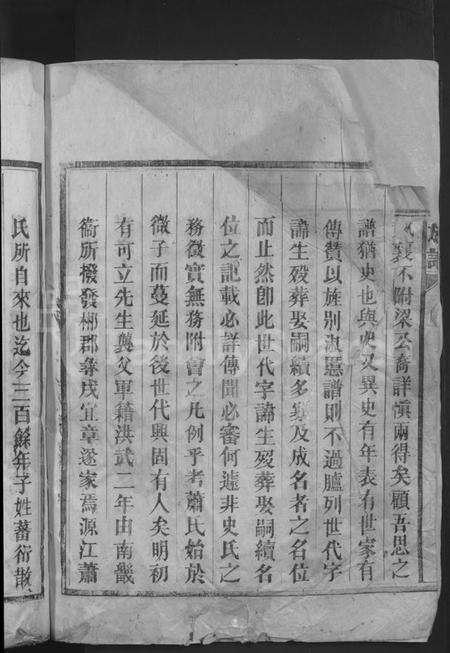 襄不附梁公裔詳慎兩得矣顧吾思之
譜猶史也與史又異史有年表有世家有
傳贊以旌別淑慝譜則不過臚列世代字
諱生歿葬娶嗣續多寡及成名者之名位
而止然卽此世代字諱生歿葬娶嗣續名
位之記載必詳傳聞必審何遽非史氏之
務徵實無務附會之凡例乎考蕭氏始於
微子而蔓延於後世代興固有人矣明初
有可立先生襲父軍籍洪武二年由南畿
衞所撥發郴郡彝戍宜章遂家焉源江蕭
氏所自來也迄今三百餘年子姓蕃衍散